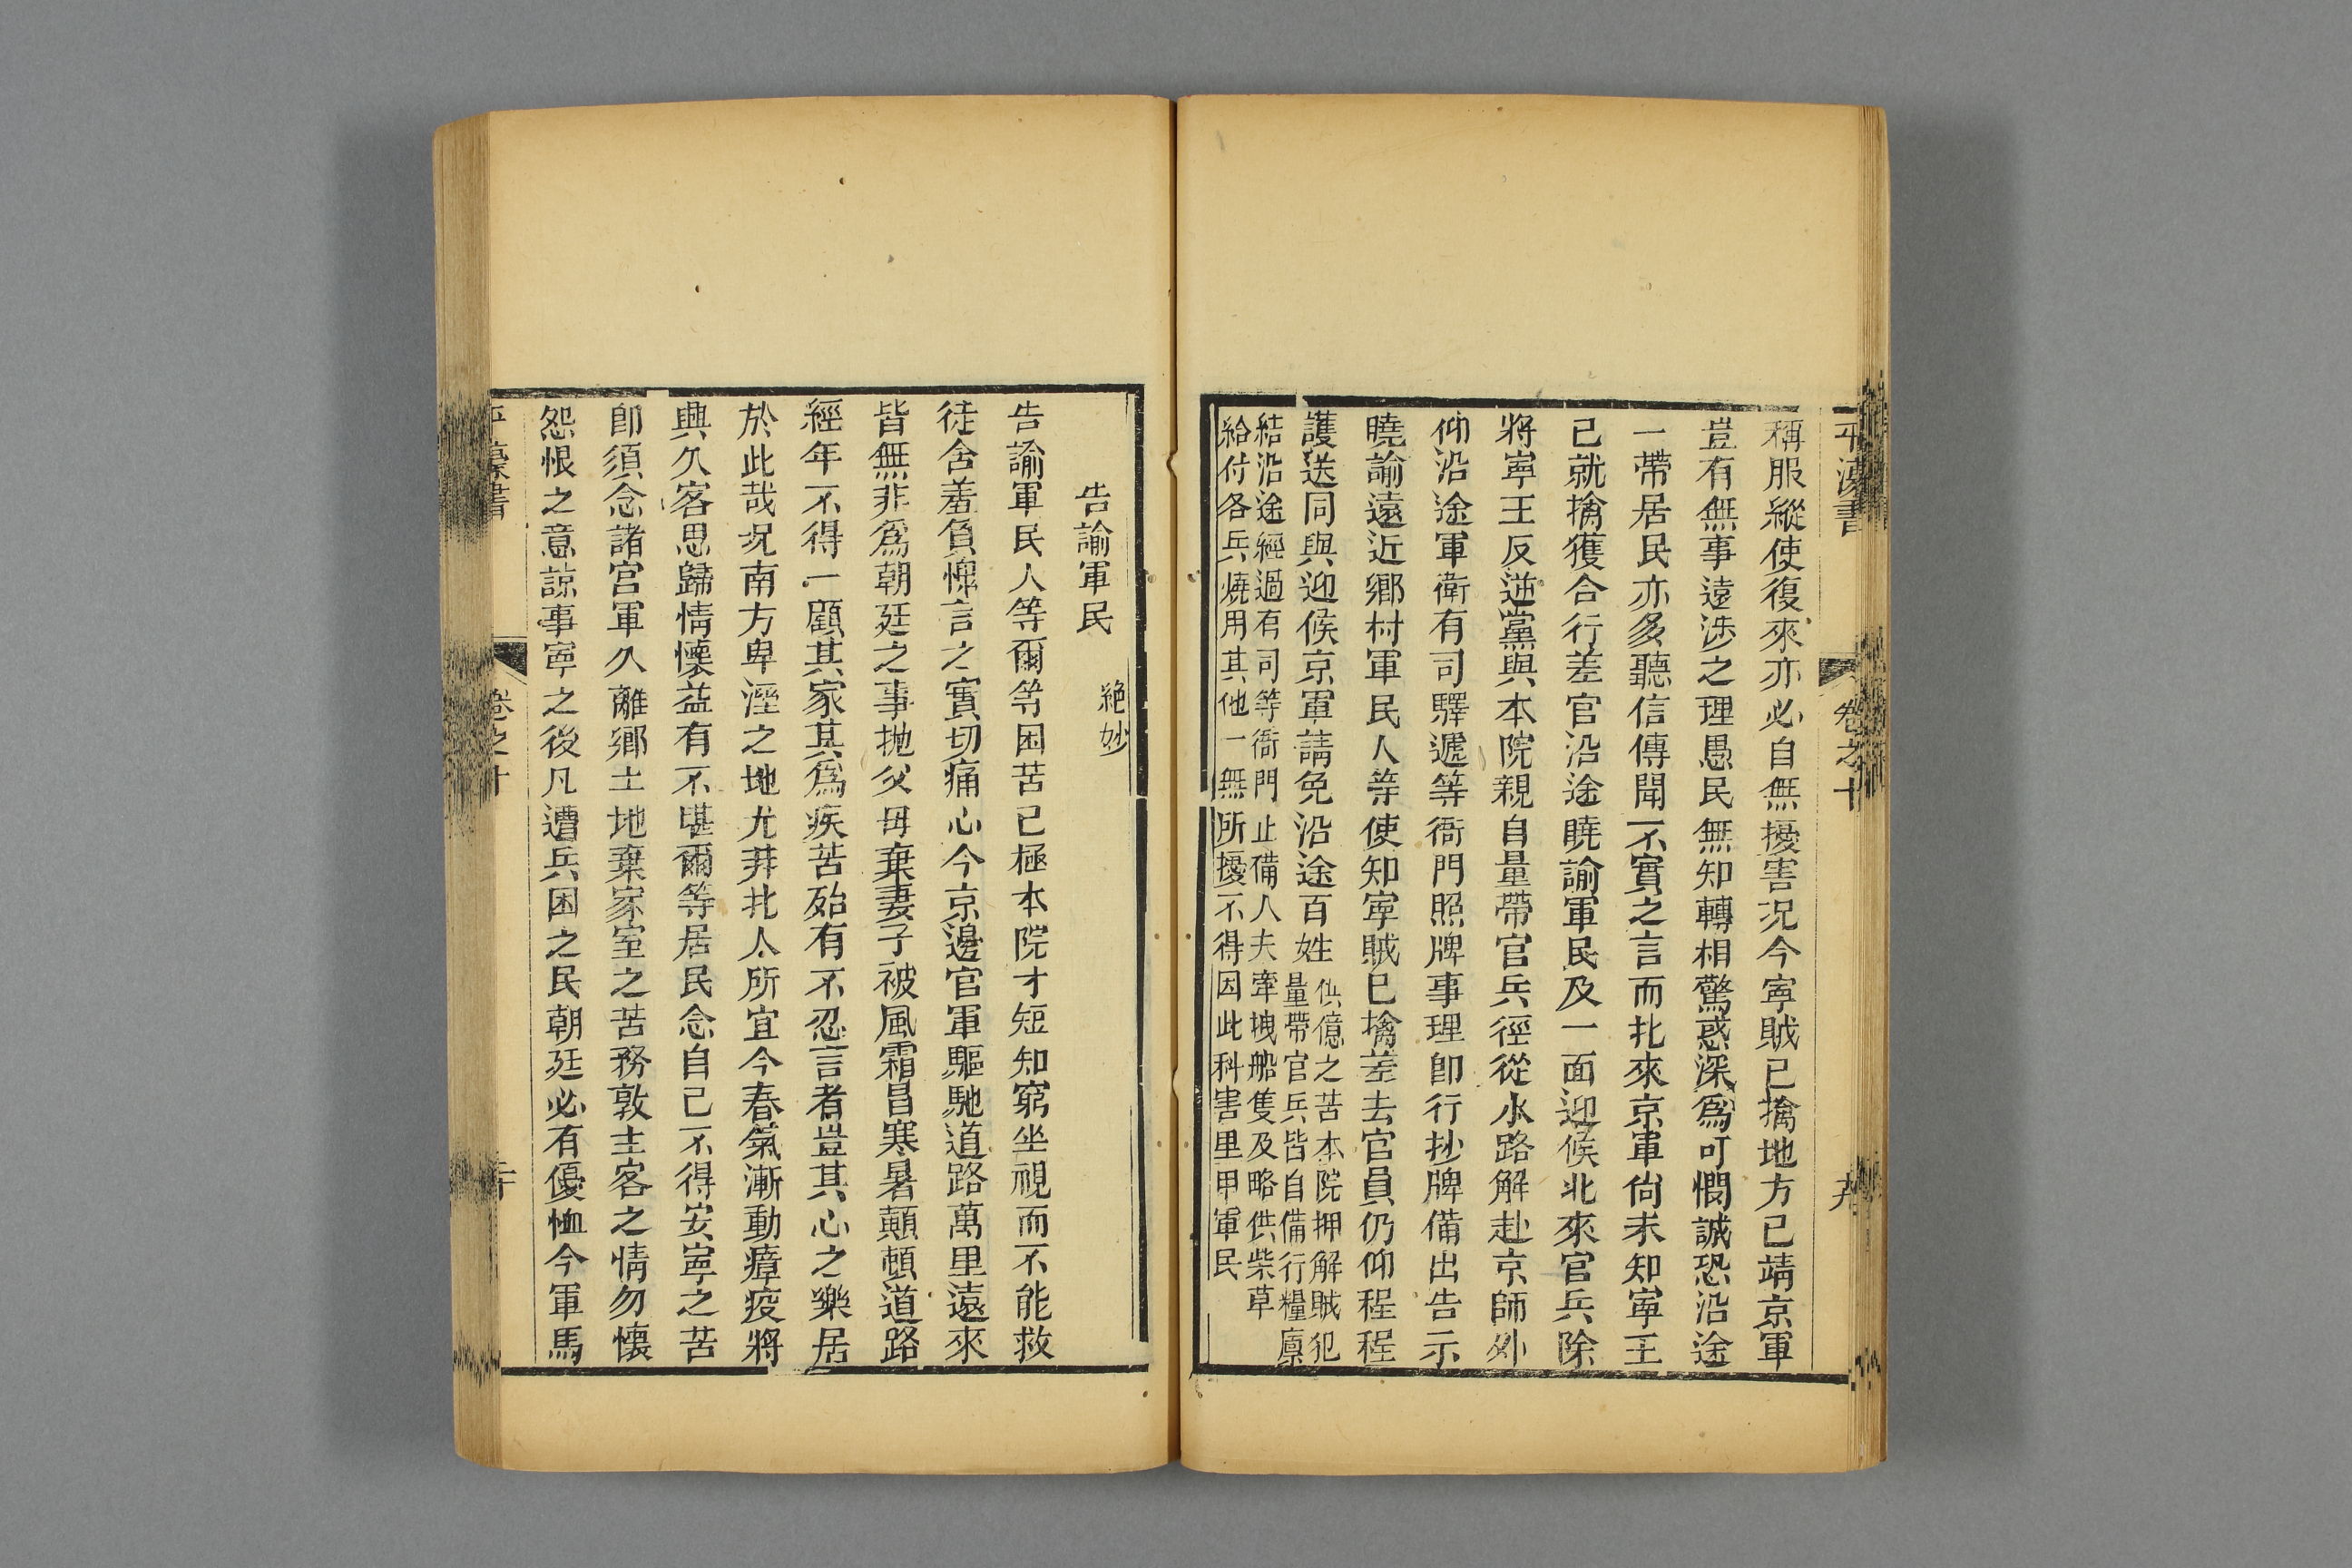 稱服縱使復來亦必自無擾害況今寧賊已擒地方已靖京軍
豈有無事遠涉之理愚民無知轉相驚惑深爲可憫誠恐沿途
一帶居民亦多聽信傳聞不實之言而北來京軍尙未知寧王
已就擒獲合行差官沿途曉諭軍民及一面迎候北來官兵除
將寧王反逆黨與本院親自量帶官兵徑從水路解赴京師外
仰沿途軍衛有司驛遞等衙門照牌事理卽行抄牌備出告示
曉諭遠近鄉村軍民人等使知寧賊已擒差去官員仍仰程程
護送同與迎候京軍請免沿途百姓
供億之苦本院押解賊犯
量帶官兵皆自備行糧廩
結沿途經過有司等衙門止備人夫牽拽船隻及略供柴草
給付各兵燒用其他一無所擾不得因此科害里甲軍民
卷之十
告諭軍民
絶妙
告諭軍民人等爾等困苦已極本院才短知窮坐視而不能救
徒含羞負愧言之實切痛心今京邊官軍驅馳道路萬里遠來
皆無非爲朝廷之事抛父母棄妻子被風霜冒寒暑顛頓道路
經年不得一顧其家其爲疾苦殆有不忍言者豈其心之樂居
於此哉況南方卑溼之地尤非北人所宜今春氣漸動瘴疫將
興久客思歸情懷益有不堪爾等居民念自己不得安寧之苦
卽須念諸官軍久離鄉土地棄家室之苦務敦主客之情勿懷
怨恨之意諒事寧之後凡遭兵困之民朝廷必有優恤今軍馬
卷之十